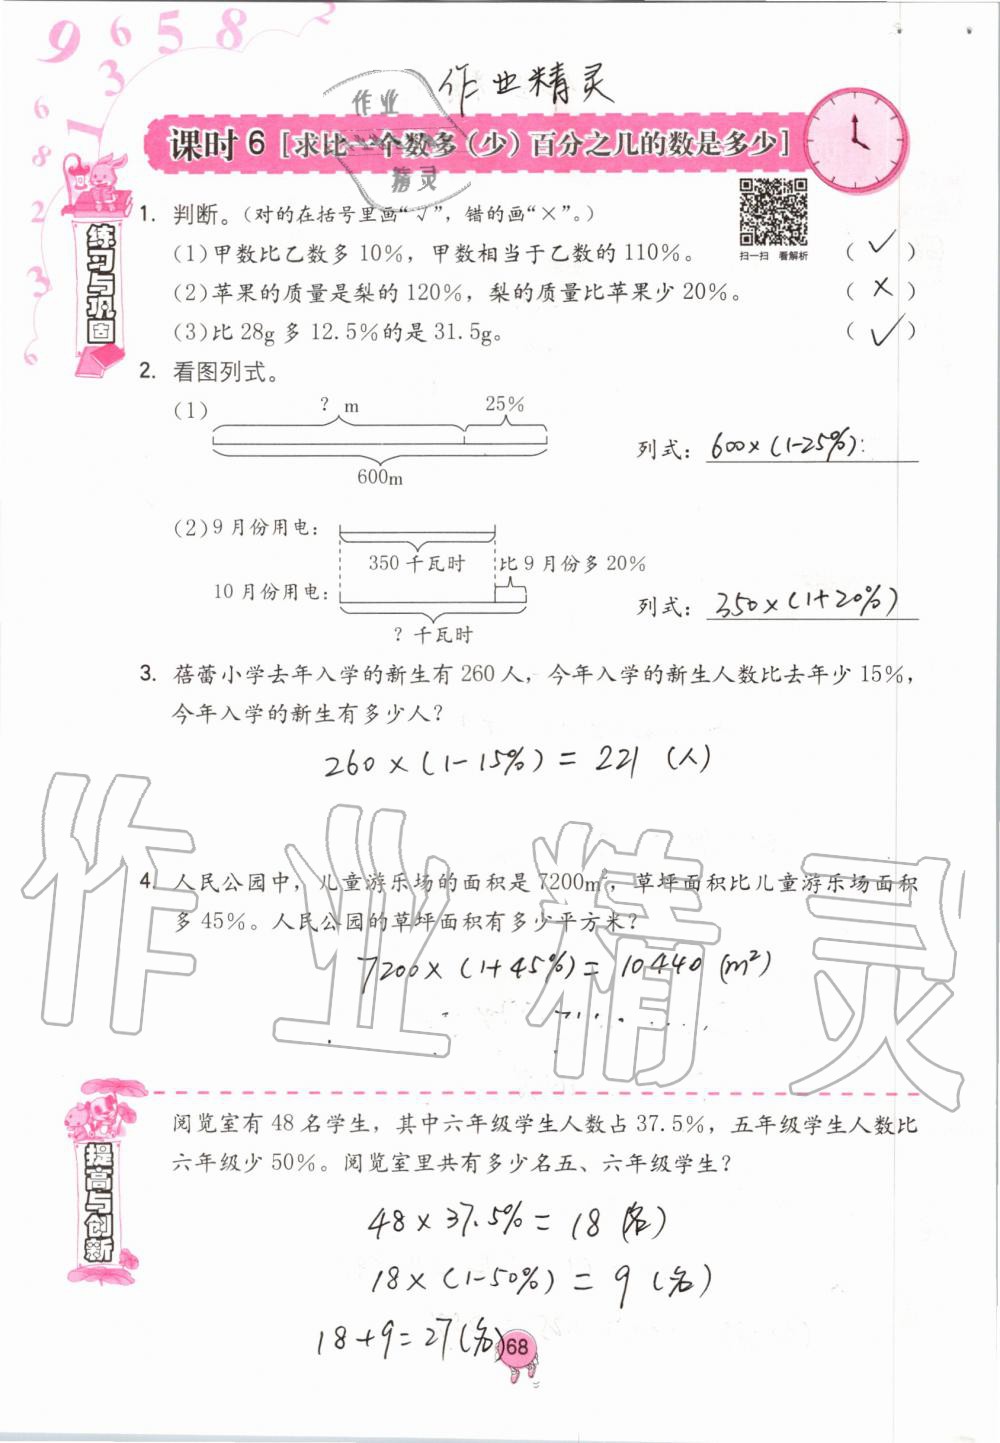 9 6 5 8 2
3
6
1
8
2
3
6
作业精灵
作业
精灵
课时6 [求比一个数多(少)百分之几的数是多少]
练习与巩固
1. 判断。(对的在括号里画“√”，错的画“×”。)
扫一扫 看解析
(1)甲数比乙数多10%，甲数相当于乙数的110%。 (✓)
(2)苹果的质量是梨的120%，梨的质量比苹果少20%。 (×)
(3)比28g多12.5%的是31.5g。 (✓)
2. 看图列式。
(1) ? m 25%
600m
列式：600×(1-25%)
(2)9月份用电：
350千瓦时 比9月份多20%
10月份用电：
? 千瓦时
列式：350×(1+20%)
3. 蓓蕾小学去年入学的新生有260人，今年入学的新生人数比去年少15%，
今年入学的新生有多少人？
260×(1-15%)=221(人)
4. 人民公园中，儿童游乐场的面积是7200m²，草坪面积比儿童游乐场面积
多45%。人民公园的草坪面积有多少平方米？
7200×(1+45%)=10440(m²)
作业精灵
提高与创新
阅览室有48名学生，其中六年级学生人数占37.5%，五年级学生人数比
六年级少50%。阅览室里共有多少名五、六年级学生？
48×37.5%=18(名)
18×(1-50%)=9(名)
18+9=27(名)
68